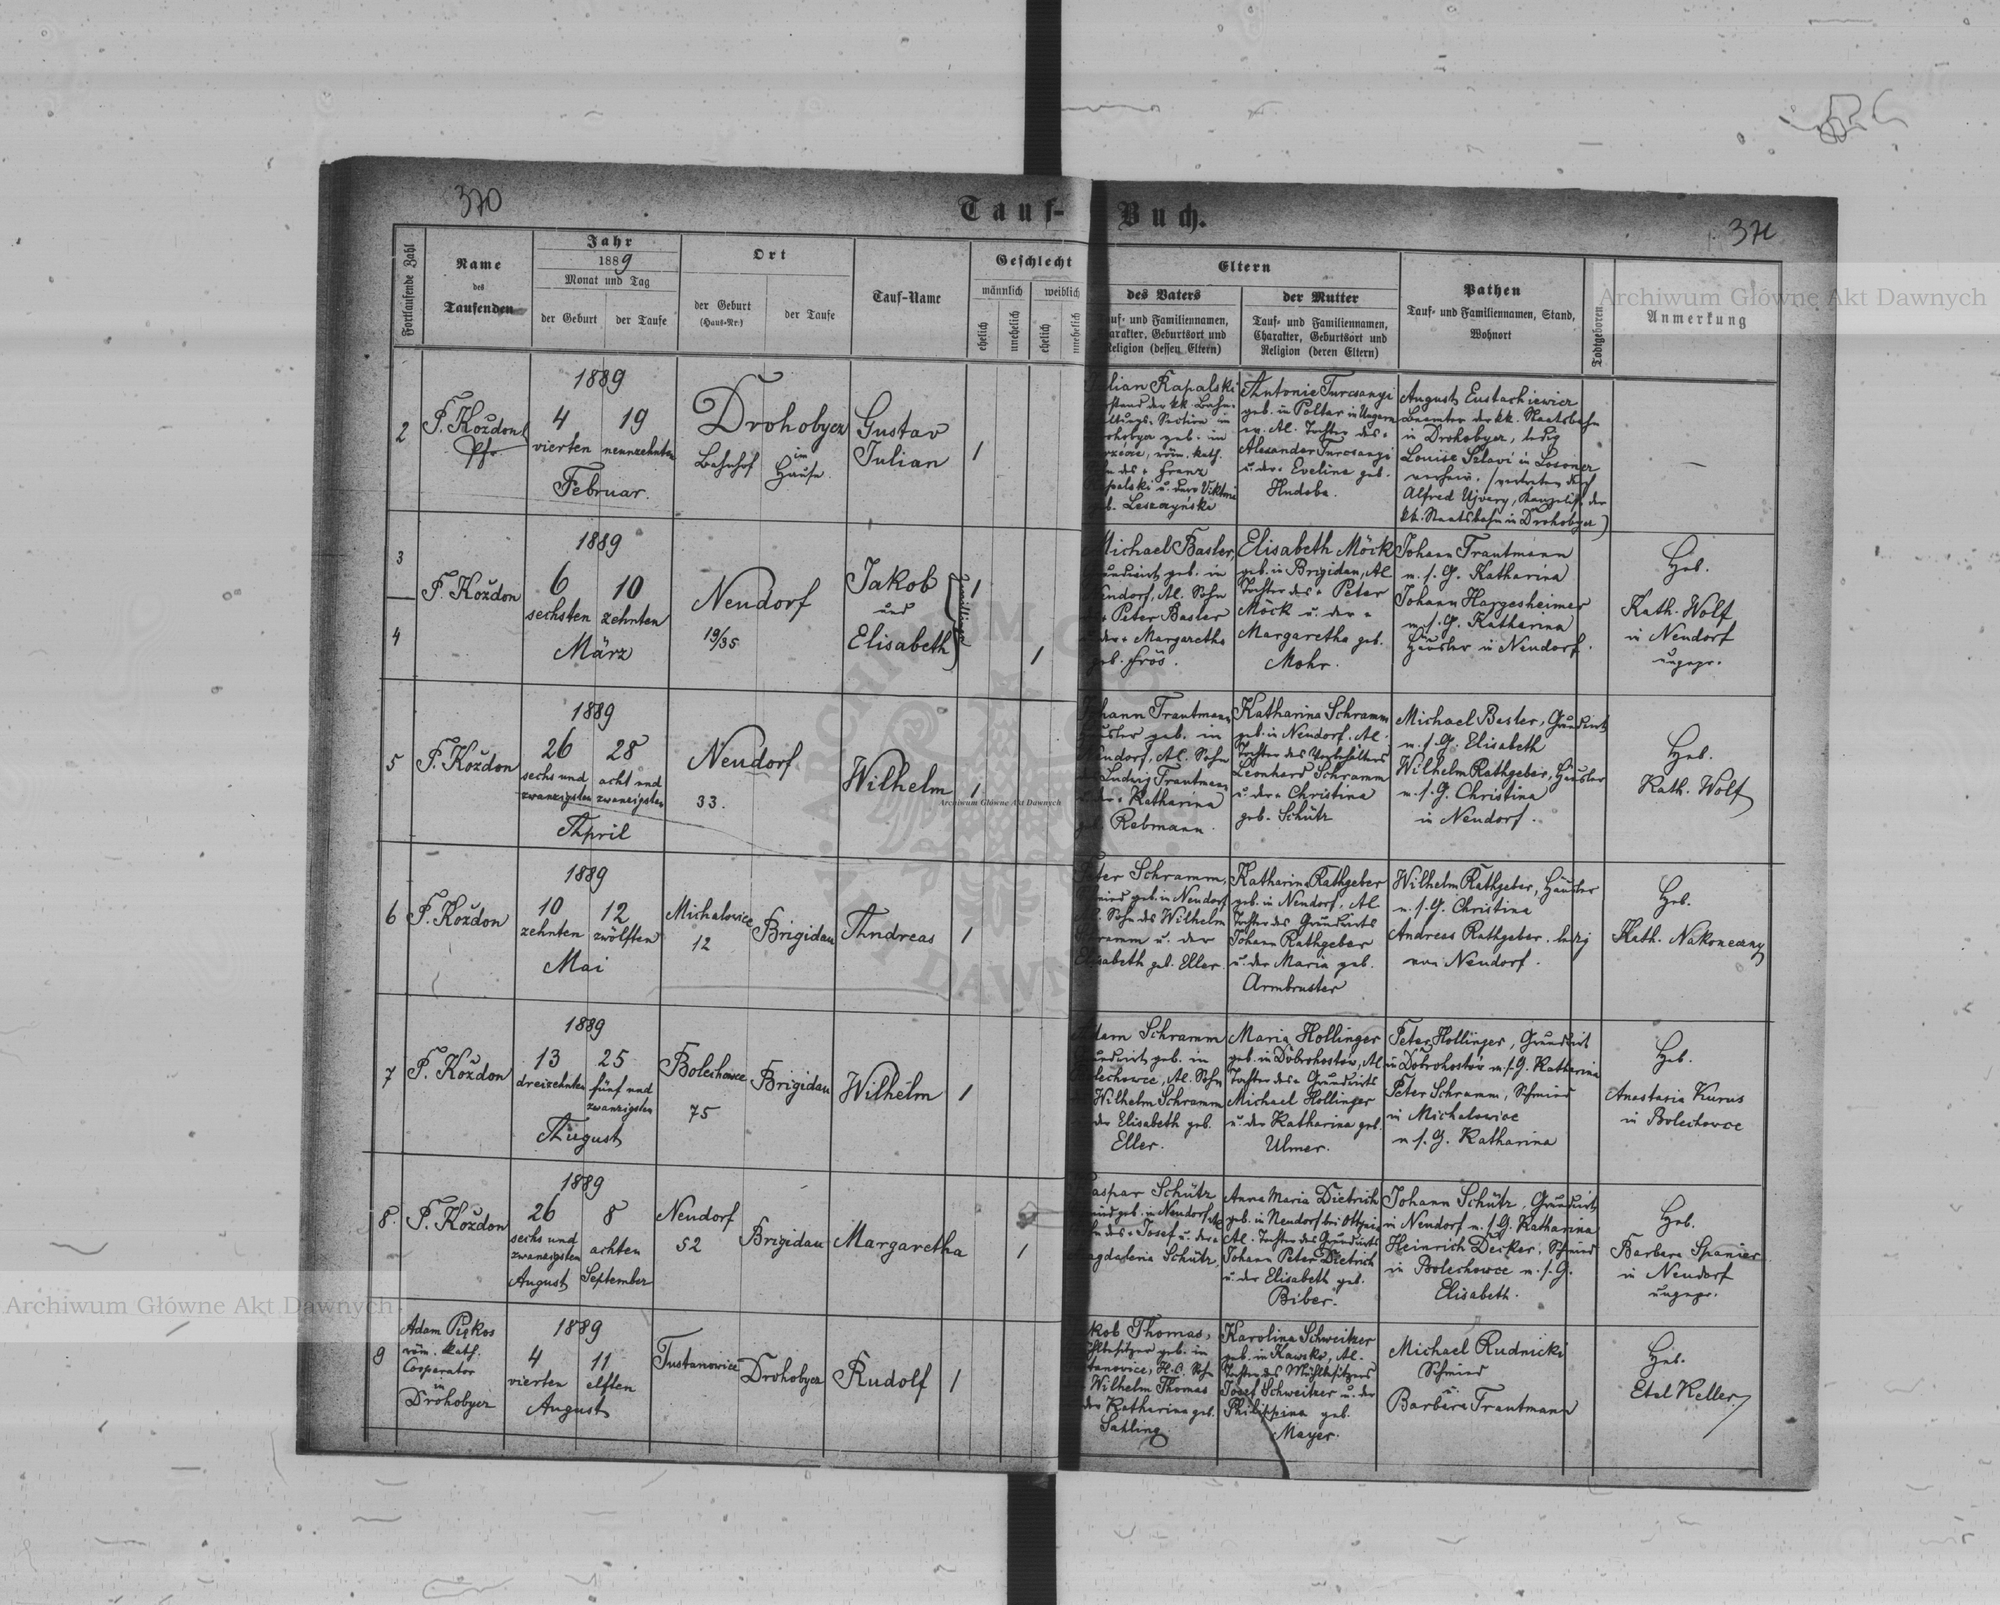 370
Tauf-Buch.
371
Fortlaufende Zahl
Name
des
Taufenden
Jahr
1889
Monat und Tag
der Geburt
der Taufe
Ort
der Geburt
(Haus-Nr.)
der Taufe
Tauf-Name
Geschlecht
männlich
weiblich
ehelich
unehelich
ehelich
unehelich
Eltern
des Vaters
auf- und Familiennamen,
arakter, Geburtsort und
Religion (dessen Eltern)
der Mutter
Tauf- und Familiennamen,
Charakter, Geburtsort und
Religion (deren Eltern)
Pathen
Tauf- und Familiennamen, Stand,
Wohnort
Todtgeboren
Anmerkung
2
F. Koždon
Pfr
1889
4
vierten
19
neunzehnten
Februar.
Drohobycz
Bahnhof
im
Hause.
Gustav
Julian
1
ulian Kapalski
geb. im
röm. kath.
des + Franz
Kapalski u. der Viktoria
geb. Leszczyńska
Antonie Turcsanyi
geb. in Poltar in Ungarn
ev. Al. Tochter des +
Alexander Turcsanyi
u. der + Eveline geb.
Hudoba.
August Eustachiewicz
Beamter der kk. Staatsbahn
in Drohobycz, ledig
Louise Szlavi in Losoncz
verheir. (vertreten durch
Alfred Ujvary, Kanzelist der
kk. Staatsbahn in Drohobycz)
—
3
4
F. Koždon
1889
6
sechsten
10
zehnten
März
Neudorf
19/35
Jakob
und
Elisabeth
Zwillinge
1
1
Michael Basler,
Grundwirt, geb. in
Neudorf, Al. Sohn
Peter Basler
u. der + Margaretha
geb. Frös.
Elisabeth Möck
geb. in Brigidau, Al.
Tochter des + Peter
Möck u. der +
Margaretha geb.
Mohr.
Johann Trautmann
u. s. G. Katharina
Johann Hargesheimer
u. s. G. Katharina
Häusler in Neudorf.
Heb.
Kath. Wolf
in Neudorf
ungepr.
5
F. Koždon
1889
26
sechs und
zwanzigsten
28
acht und
zwanzigsten
April
Neudorf
33.
Wilhelm
1
Johann Trautmann
Häusler geb. in
Neudorf, Al. Sohn
Ludwig Trautmann
u. der + Katharina
geb. Rebmann.
Katharina Schramm
geb. in Neudorf, Al.
Tochter des
Leonhard Schramm
u. der + Christina
geb. Schütz
Michael Besler, Grundwirt
u. s. G. Elisabeth
Wilhelm Rathgeber, Häusler
u. s. G. Christina
in Neudorf.
Heb.
Kath. Wolf
6
F. Koždon
1889
10
zehnten
12
zwölften
Mai
Michalovice
12
Brigidau
Andreas
1
Peter Schramm,
Schmied geb. in Neudorf
Al. Sohn des Wilhelm
Schramm u. der
Elisabeth geb. Eller.
Katharina Rathgeber
geb. in Neudorf, Al.
Tochter des Grundwirts
Johann Rathgeber
u. der Maria geb.
Armbruster
Wilhelm Rathgeber, Häusler
u. s. G. Christina
Andreas Rathgeber, ledig
von Neudorf.
Heb.
Kath. Nakoneczny
7
F. Koždon
1889
13
dreizehnten
25
fünf und
zwanzigsten
August
Bolechowce
75
Brigidau
Wilhelm
1
Adam Schramm
Grundwirt, geb. in
Bolechowce, Al. Sohn
Wilhelm Schramm
der Elisabeth geb.
Eller.
Maria Hollinger
geb. in Dobrohostów, Al.
Tochter des + Grundwirts
Michael Hollinger
u. der Katharina geb.
Ulmer.
Peter Hollinger, Grundwirt
in Dobrohostów u. s. G. Katharina
Peter Schramm, Schmied
in Michalowice
u. s. G. Katharina
Heb.
Anastasia Kurus
in Bolechowce
8.
F. Koždon
1889
26
sechs und
zwanzigsten
August
8
achten
September
Neudorf
52
Brigidau
Margaretha
1
Kaspar Schütz
geb. in Neudorf Al.
des + Josef u. der +
Magdalena Schütz,
Anna Maria Dietrich
geb. in Neudorf bei
Al. Tochter des Grundwirts
Johann Peter Dietrich
u. der Elisabeth geb.
Biber.
Johann Schütz, Grundwirt
in Neudorf u. s. G. Katharina
Heinrich Decker, Schmied
in Bolechowce u. s. G.
Elisabeth.
Heb.
Barbara Spanier
in Neudorf
ungepr.
9
Adam Piękos
röm. kath.
Cooperator
in
Drohobycz
1889
4
vierten
11
elften
August
Tustanowice
Drohobycz
Rudolf
1
Jakob Thomas,
geb. in
Tustanovice, H.C. Sohn
Wilhelm Thomas
der Katharina geb.
Sahling
Karolina Schweitzer
geb. in Kawsko, Al.
Tochter des Mühlbesitzers
Josef Schweitzer u. der
Philippina geb.
Mayer.
Michael Rudnicki
Schmied
u.
Barbara Trautmann
Heb.
Etel Keller
Archiwum Główne Akt Dawnych
Archiwum Główne Akt Dawnych
Archiwum Główne Akt Dawnych